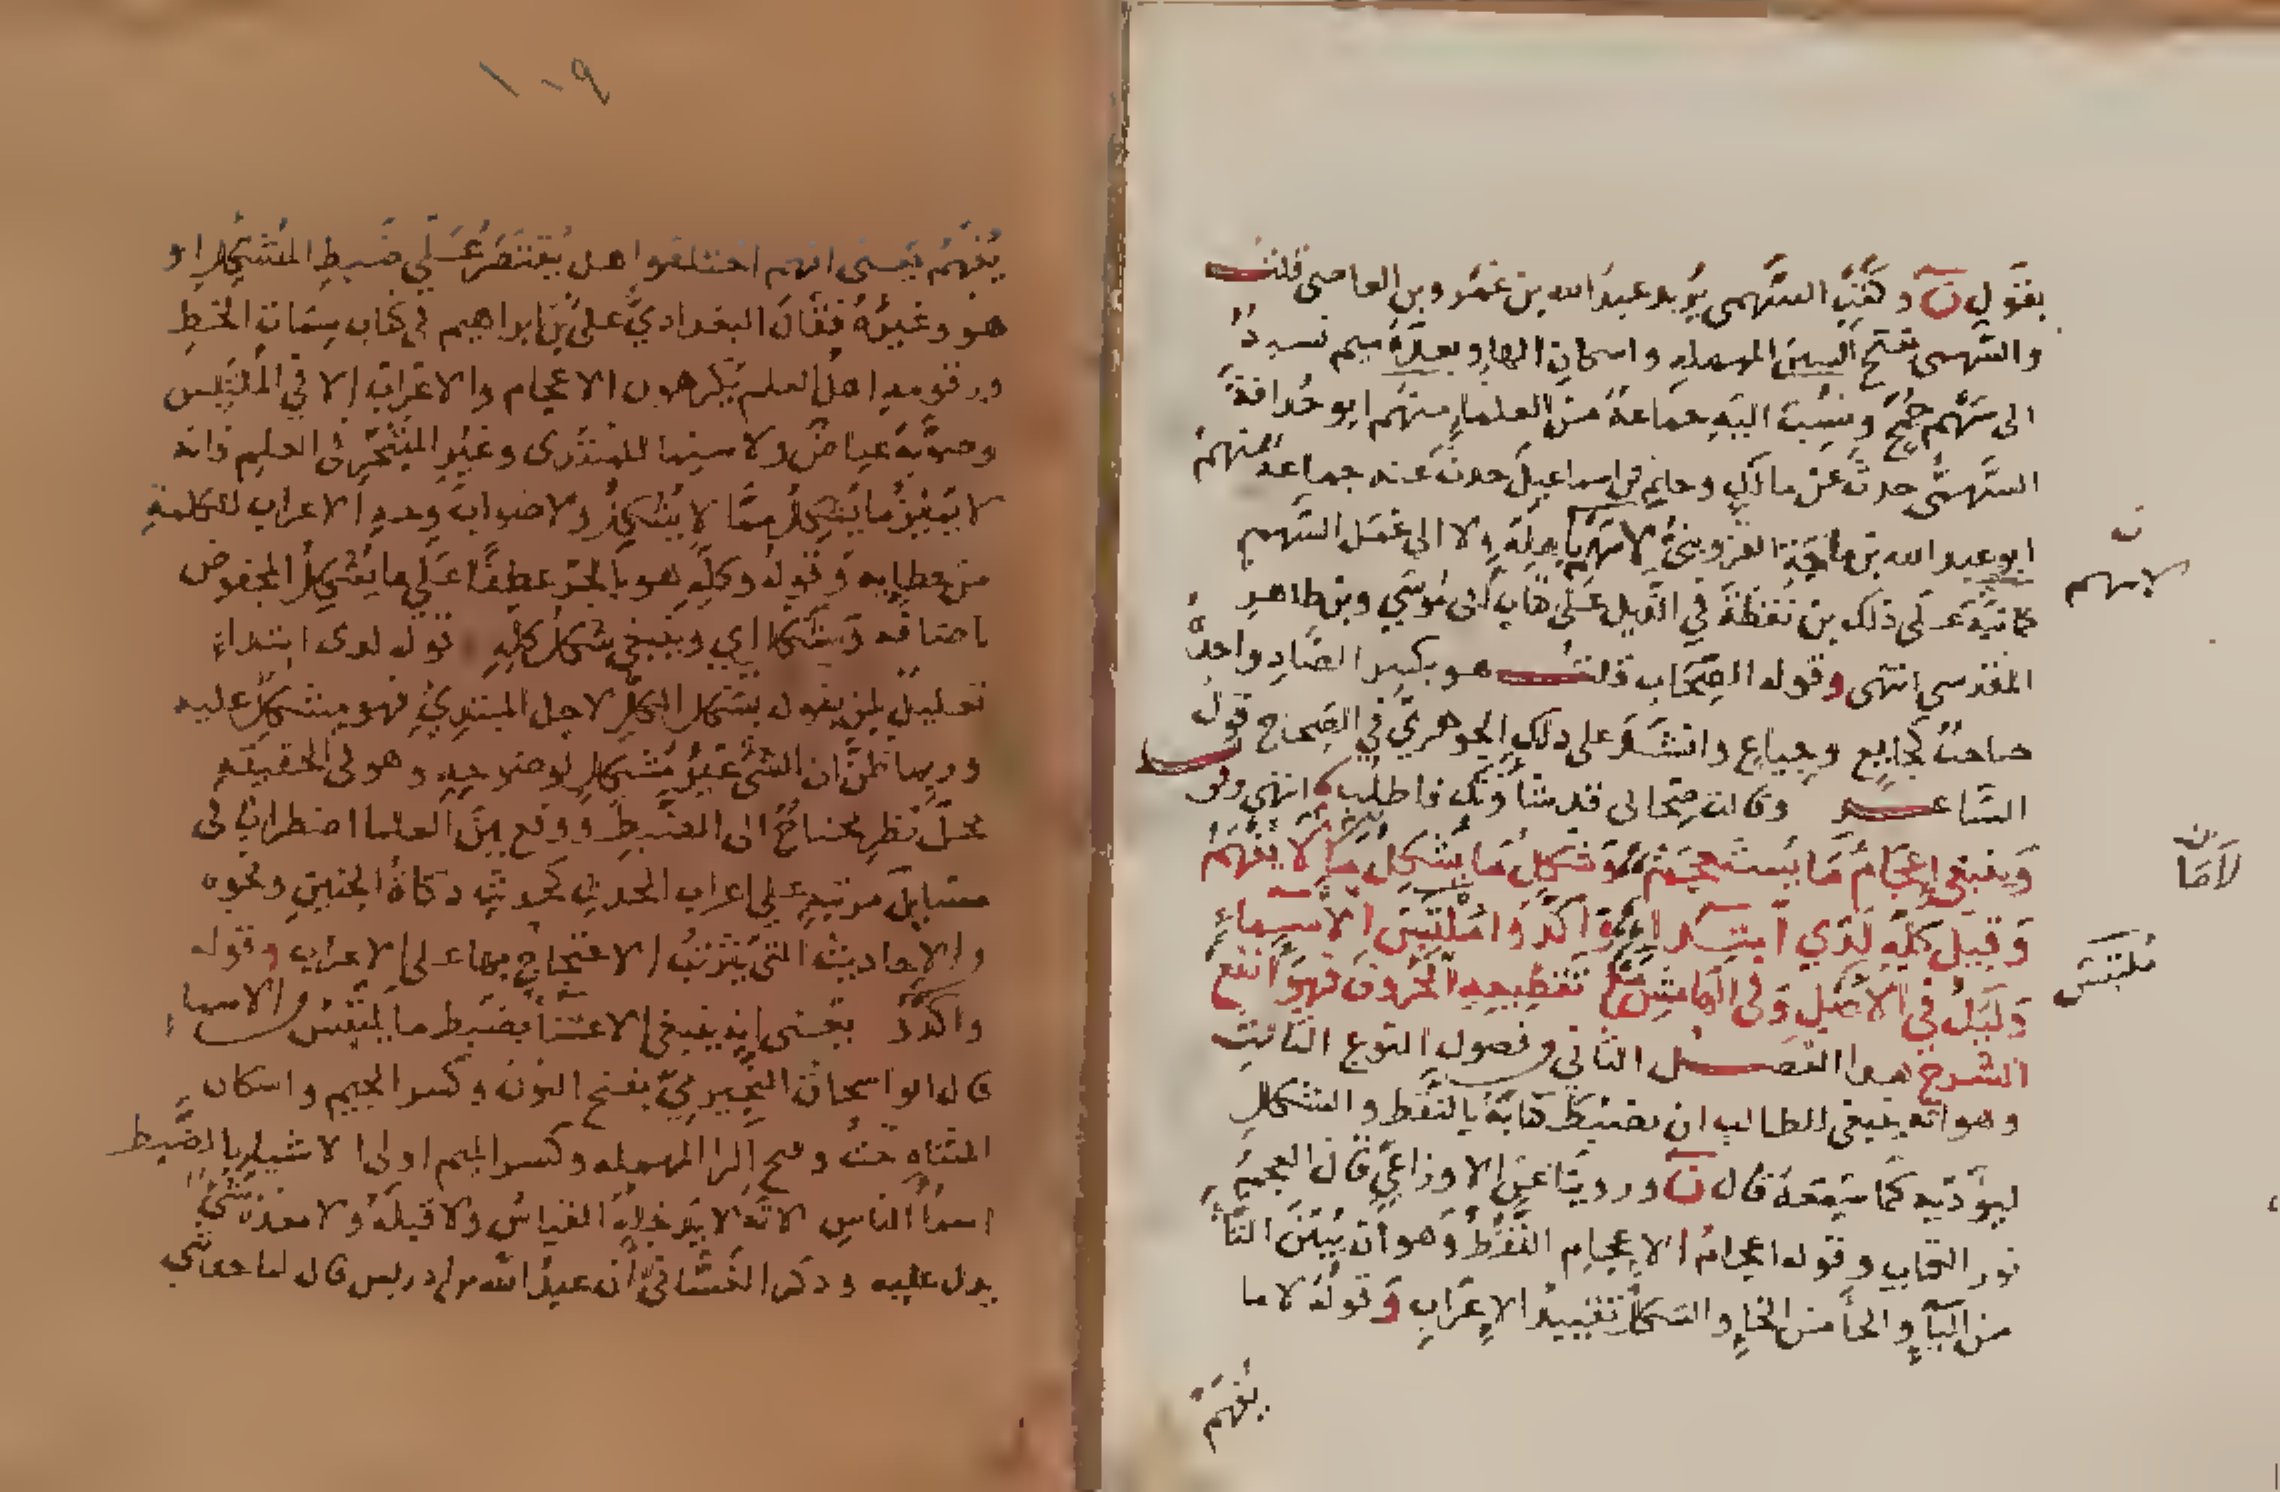 بقول ن وكتب السهمي يريد عبد الله بن عمرو بن العاصي قلت
والسهمي بفتح السين المهمله واسكان الهاء وبعده ميم نسبة
الى سهم جمح وينسب اليه جماعة من العلماء منهم ابو حذافة
السهمي حدث عن مالك وحاتم بن اسماعيل حدث عنه جماعة منهم
ابو عبد الله بن ماجة القزويني لا سهم باهلة ولا الى عمل السهم
كما نبه على ذلك بن نقطة في الذيل على كتاب ابي موسي وبن طاهر
المقدسي انتهى وقوله الصحاب قلت هو بكسر الصاد واحده
صاحب كجايع وجياع وانشد على ذلك الجوهري في الصحاح قول
الشاعر وقالت صحابي قد شأونك فاطلب انتهى
وينبغي اعجام ما يستعجم وشكل ما يشكل لا ما يفهم
وقيل كله لذي ابتداء واكدوا ملتبس الاسماء
وليك في الاصل وفي الهامش مع تقطيعه الحروف فهو انفع
الشرح هذا الفصل الثاني من فصول النوع الثالث
وهو انه ينبغي للطالب ان يضبط كتابه بالنقط والشكل
ليؤديه كما سمعه قال ن وروينا عن الاوزاعي قال العجم
نور الكتاب وقوله اعجام الاعجام النقط وهو ان يبين التاء
من الياء والحاء من الخاء والشكل تقييد الاعراب وقوله لا ما
يفهم
ن
لا سهم
ن
لا ما
ملتبس
١٠٩
يفهم يعني انهم اختلفوا هل يقتصر على ضبط المشكل او
هو وغيره فقال البغدادي علي بن ابراهيم في كتاب سمات الخط
ورقومه اهل العلم يكرهون الاعجام والاعراب الا في الملتبس
وصوبه عياض ولا سيما للمبتدى وغير المتبحر في العلم فانه
لا يميز ما يشكل مما لا يشكل ولا صواب وجه الاعراب للكلمة
من خطايه وقوله وكله هو بالجر عطفا على ما يشكل المخفوض
باضافة وشكل اي وينبغي شكل كله قوله لذي ابتداء
تعليل لمن يقول بشكل الكل لاجل المبتدئ فهو مشكل عليه
وربما ظن ان الشئ غير مشكل لوضوحه وهو في الحقيقه
محل نظر محتاج الى الضبط ووقع بين العلما اضطراب في
مسايل مرتبه على اعراب الحديث كحديث ذكاة الجنين ونحوه
والاحاديث التي يترتب الاحتجاج بها على الاعراب وقوله
واكدوا يعني انه ينبغي الاعتنا بضبط ما يلتبس من الاسماء
قال ابو اسحاق النجيرمي بفتح النون وكسر الجيم واسكان
المثناه تحت وفتح الرا المهمله وكسر الميم اولى الاشياء بالضبط
اسماء الناس لانه لا يدخله القياس ولا قبله ولا بعده شئ
يدل عليه وذكر الغساني ان عبد الله بن ادريس قال لما حدثني